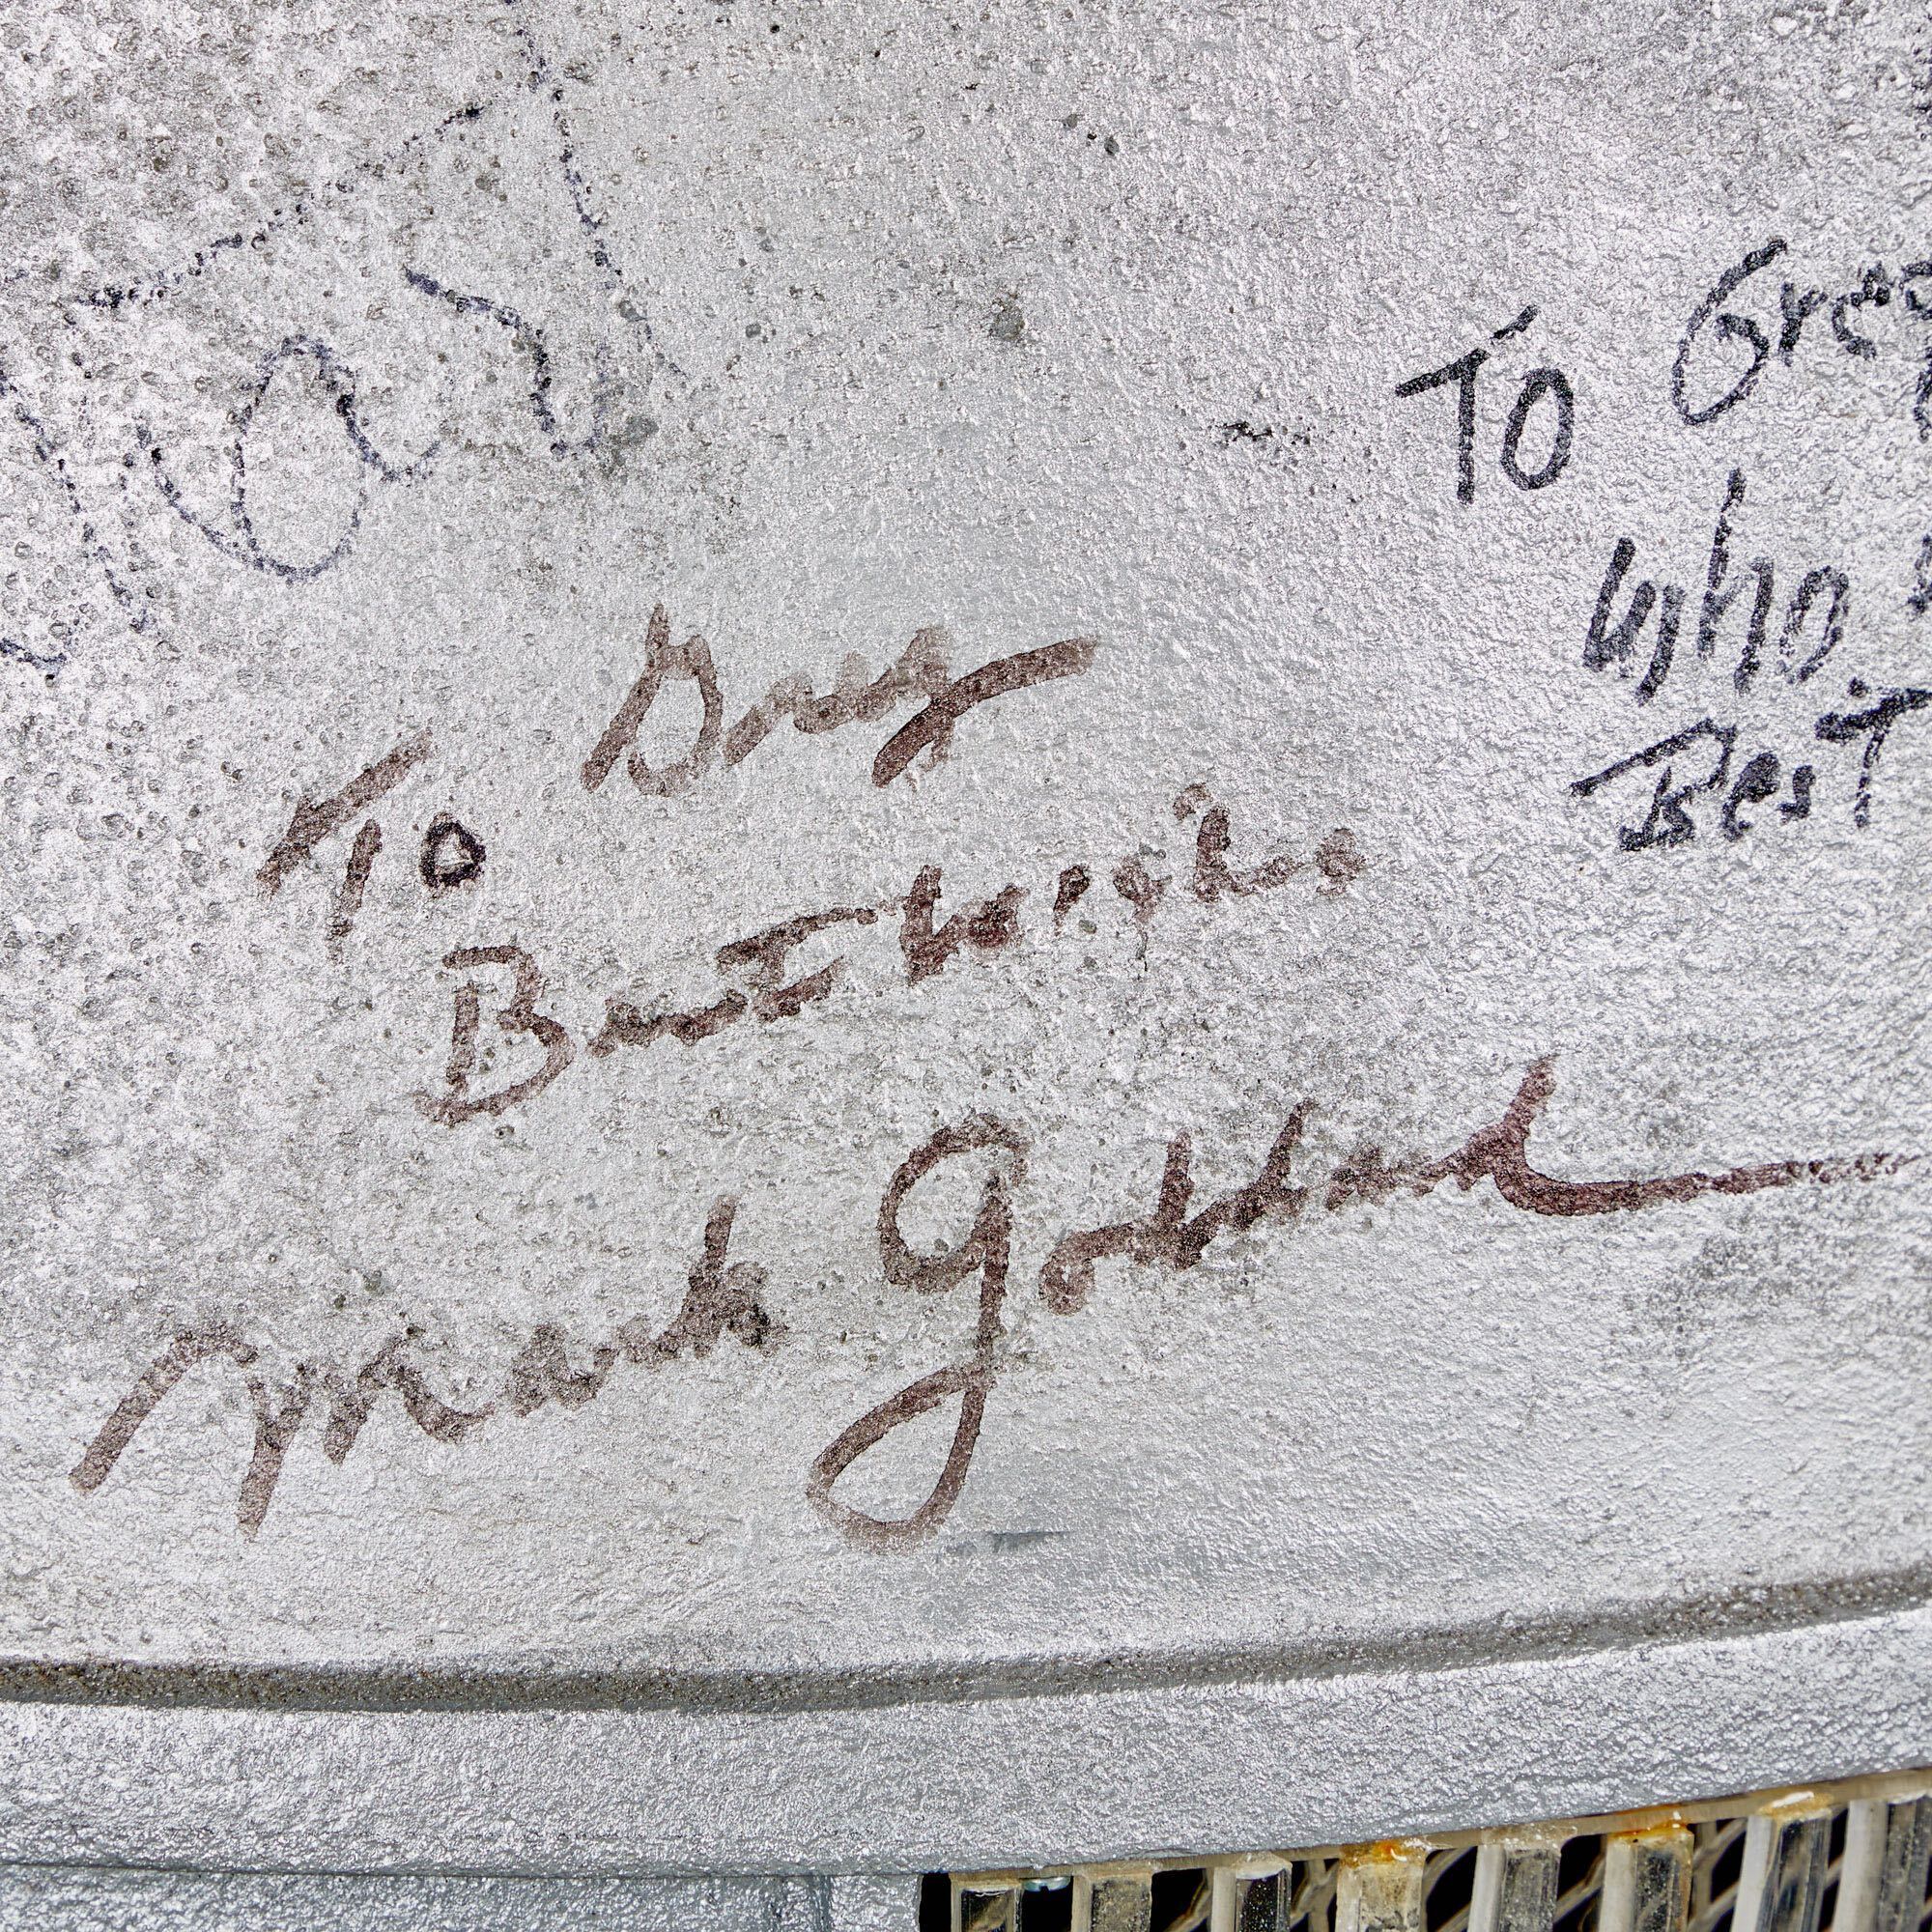 To Greg
Best Wishes
Mark Goddard
To Greg
Who
Best